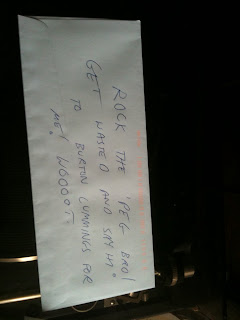 ROCK THE 'PEG BRO!
GET WASTED AND SAY HI
TO BURTON CUMMINGS FOR
ME! WOOOOT.